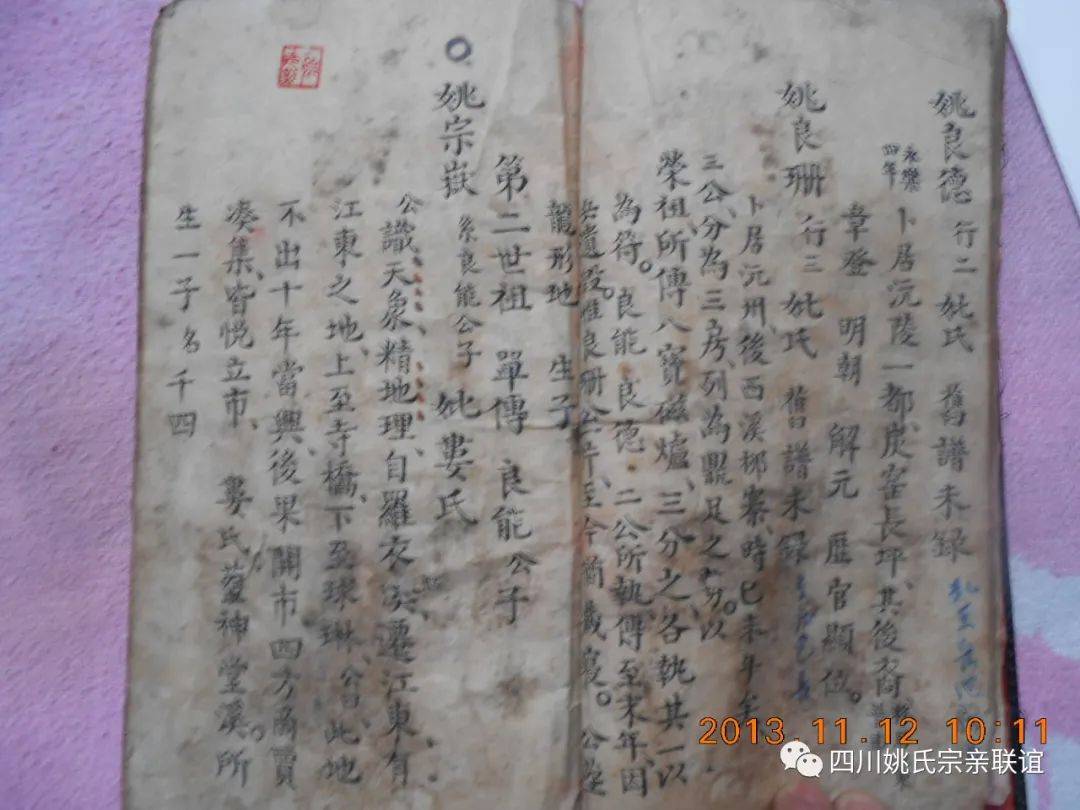 姚良德 行二 妣氏 舊譜未録
永樂四年 卜居沅陵一都炭窑長坪、其後裔
章登 明朝 解元 歷官顯位。
姚良珊 行三 妣氏 舊譜未録
卜居沅州後西溪梛寨、時已未年
三公、分為三房、列為鼎足之分。以
榮祖、所傳八寶磁爐、三分之、各執其一以
為符。良能、良德、二公所執、傳至末年、因
兵遺毀。惟良珊公 至今 藏襄。公塟
龍形地 生子
第二世祖 單傳 良能公子
姚宗嶽 系良能公子 妣婁氏
公識天象、精地理、自羅衣 遷江東有
江東之地、上至寺橋、下至琭琳、公曰、此地
不出十年當興、後果開市四方商賈
凑集、皆悦立市、 婁氏塟神堂溪。所
生一子名千四
2013.11.12 10:11
四川姚氏宗亲联谊